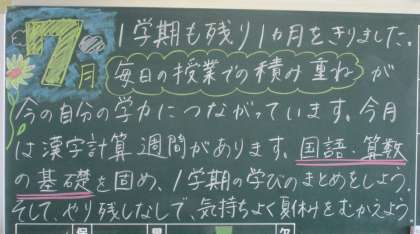 7月
1学期も残り1ヵ月をきりました。
毎日の授業での積み重ねが
今の自分の学力につながっています。今月
は漢字計算週間があります。国語・算数
の基礎を固め、1学期の学びのまとめをしよう。
そして、やり残しなしで、気持ちよく夏休みをむかえよう。